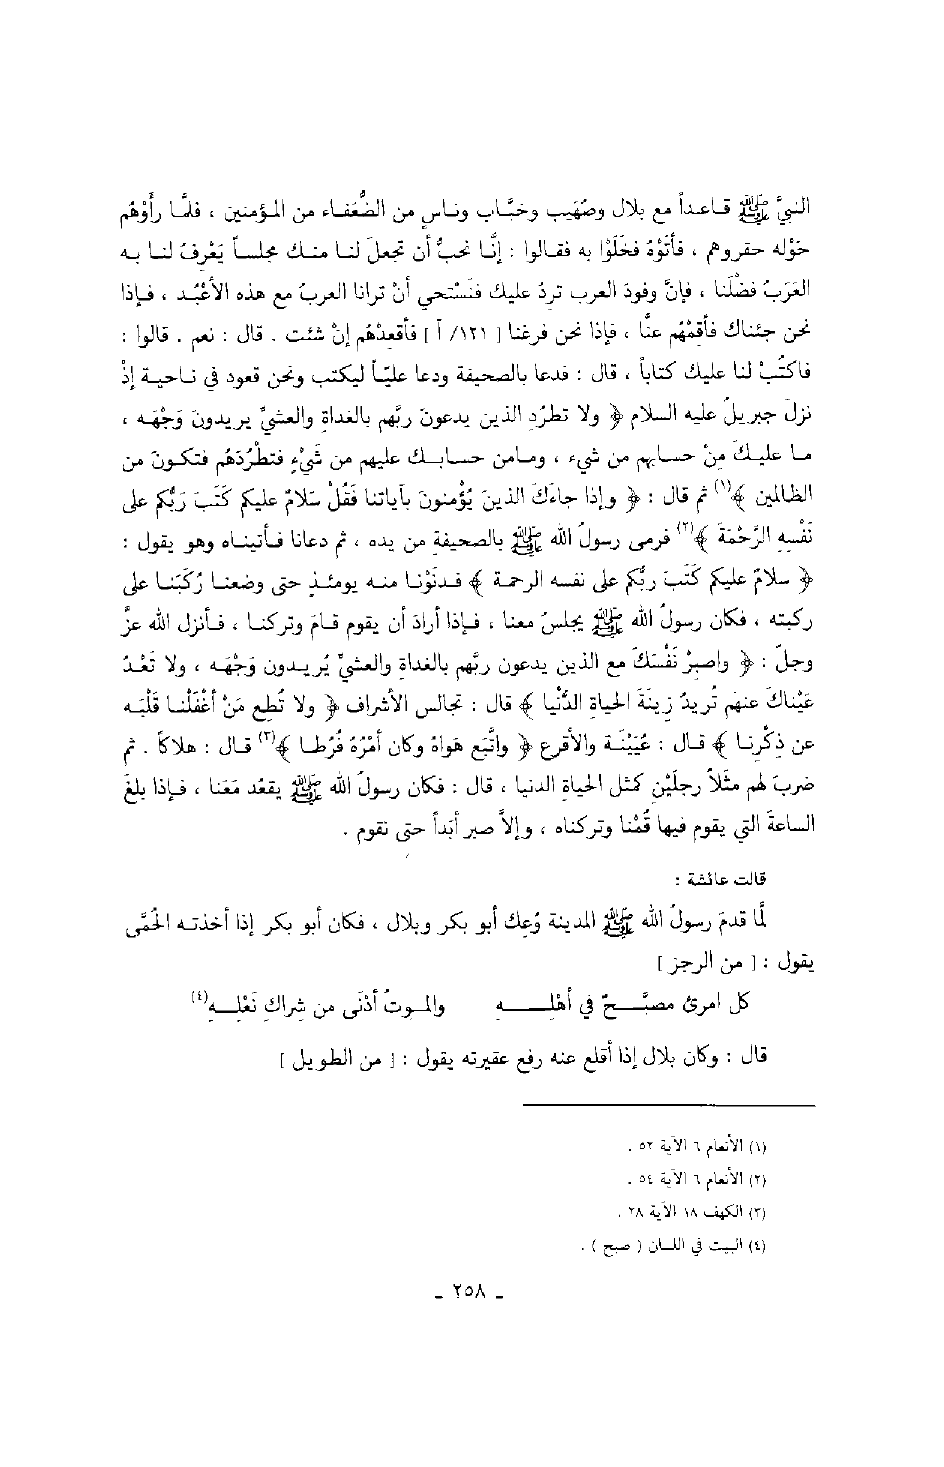 النبيَّ ﷺ قاعداً مع بلال وصُهَيب وخبَّاب وناسٍ من الضُّعَفاء من المؤمنين ، فلمَّا رأَوْهُم
حَوْله حقروهم ، فأتَوْهُ فخَلَوْا به فقالوا : إنَّا نحبُّ أن تجعلَ لنا منك مجلساً يَعْرِفُ لنا به
العَرَبُ فضْلَنا ، فإنَّ وفودَ العرب تردُ عليك فنَسْتحي أنْ ترانا العربُ مع هذه الأعْبُد ، فإذا
نحن جئناك فأقمْهُم عنَّا ، فإذا نحن فرغنا [ ١٢١/ أ ] فأقعدْهُم إنْ شئت . قال : نعم . قالوا :
فاكتُبْ لنا عليك كتاباً ، قال : فدعا بالصحيفة ودعا عليّاً ليكتب ونحن قعود في ناحية إذْ
نزلَ جبريلُ عليه السلام ﴿ ولا تطرُدِ الذين يدعونَ ربَّهم بالغداةِ والعشيِّ يريدونَ وَجْهَه ،
ما عليكَ مِنْ حسابهم من شيء ، ومامن حسابك عليهم من شَيْءٍ فتطْرُدَهُم فتكونَ من
الظالمين ﴾(١) ثم قال : ﴿ وإذا جاءَكَ الذينَ يُؤْمنونَ بآياتنا فَقُلْ سَلامٌ عليكم كَتَبَ رَبُّكم على
نَفْسِهِ الرَّحْمَةَ ﴾(٢) فرمى رسولُ الله ﷺ بالصحيفةِ من يده ، ثم دعانا فأتيناه وهو يقول :
﴿ سلامٌ عليكم كَتَبَ ربُّكم على نفسه الرحمة ﴾ فدنَوْنا منه يومئذٍ حتى وضعنا رُكَبَنا على
ركبته ، فكان رسولُ الله ﷺ يجلسُ معنا ، فإذا أرادَ أن يقوم قامَ وتركنا ، فأنزل الله عزَّ
وجلّ : ﴿ واصبِرْ نَفْسَكَ مع الذين يدعون ربَّهم بالغداةِ والعشيِّ يُريدون وَجْهَه ، ولا تَعْدُ
عَيْناكَ عنهم تُريدُ زينَةَ الحياةِ الدُّنْيا ﴾ قال : تجالس الأشراف ﴿ ولا تُطِع مَنْ أغْفَلْنا قَلْبَه
عن ذِكْرِنا ﴾ قال : عُيَيْنَة والأقرع ﴿ واتَّبَع هَواهُ وكان أمْرُهُ فُرُطا ﴾(٣) قال : هلاكاً . ثم
ضربَ لهم مثَلاً رجلَيْنِ كمثل الحياةِ الدنيا ، قال : فكان رسولُ الله ﷺ يقعُد مَعَنا ، فإذا بلغَ
الساعةَ التي يقوم فيها قُمْنا وتركناه ، وإلاَّ صبر أبَداً حتى نقوم .
قالت عائشة :
لَمَّا قدمَ رسولُ الله ﷺ المدينة وُعِك أبو بكر وبلال ، فكان أبو بكر إذا أخذته الحُمَّى
يقول : [ من الرجز ]
كل امرئ مصبَّحٌ في أهْلِهِ والموتُ أدْنَى من شِراكِ نَعْلِهِ(٤)
قال : وكان بلال إذا أقلع عنه رفع عقيرته يقول : [ من الطويل ]
(١) الأنعام ٦ الآية ٥٢ .
(٢) الأنعام ٦ الآية ٥٤ .
(٣) الكهف ١٨ الآية ٢٨ .
(٤) البيت في اللسان ( صبح ) .
ـ ٢٥٨ ـ